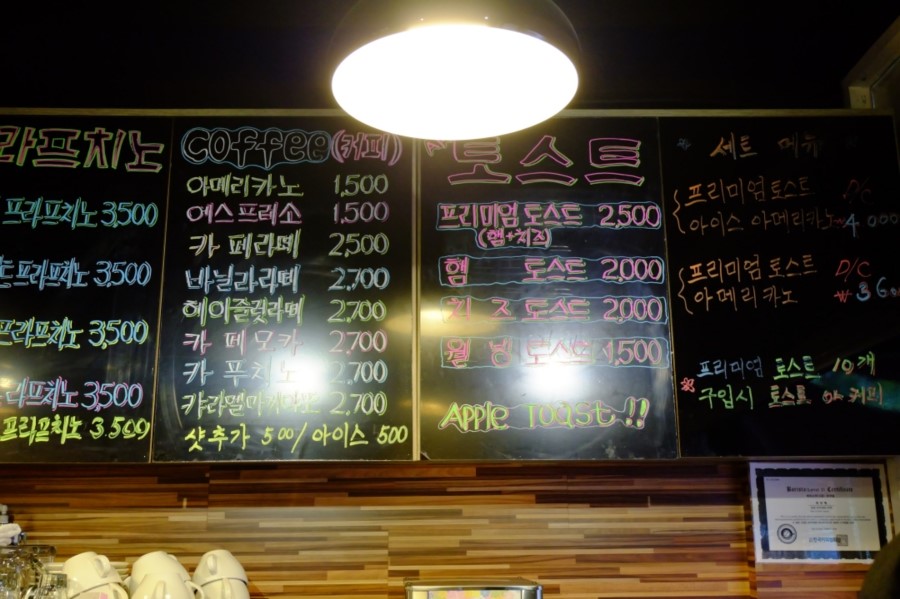 라프치노
프라프치노 3,500
프라프치노 3,500
프라프치노 3,500
라프치노 3,500
프라프치노 3,500
coffee (커피)
아메리카노 1,500
에스프레소 1,500
카페라떼 2,500
바닐라라떼 2,700
헤이즐럿라떼 2,700
카페모카 2,700
카푸치노 2,700
캬라멜마끼아또 2,700
샷추가 500/아이스 500
토스트
프리미엄 토스트 2,500
(햄+치즈)
햄 토스트 2,000
치즈 토스트 2,000
웰빙 토스트 1,500
Apple Toast!!
세트 메뉴
프리미엄토스트 D/C
아이스 아메리카노 ₩4,000
프리미엄토스트 D/C
아메리카노 ₩3,600
프리미엄 토스트 10개
구입시 토스트 or 커피